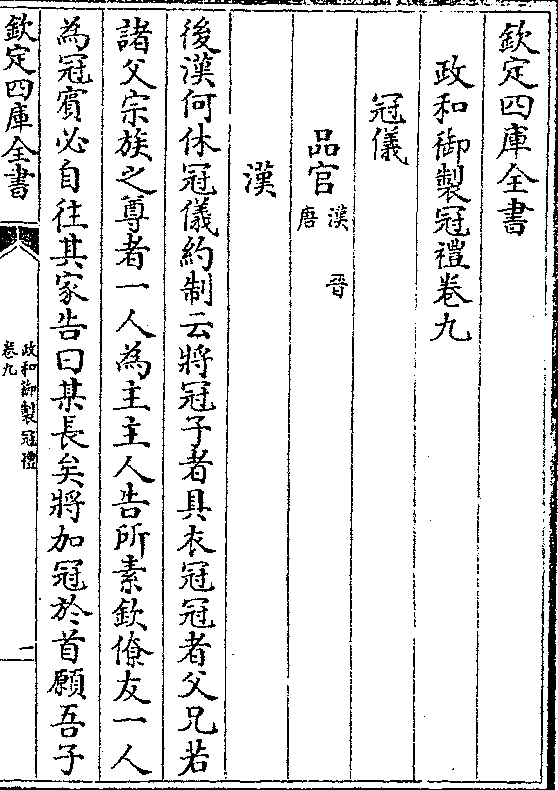 欽定四庫全書
政和御製冠禮卷九
冠儀
品官漢 晉唐
漢
後漢何休冠儀約制云將冠子者具衣冠冠者父兄若
諸父宗族之尊者一人為主主人告所素欽僚友一人
為冠賓必自往其家告曰某長矣將加冠於首願吾子
欽定四庫全書
政和御製冠禮
卷九
一